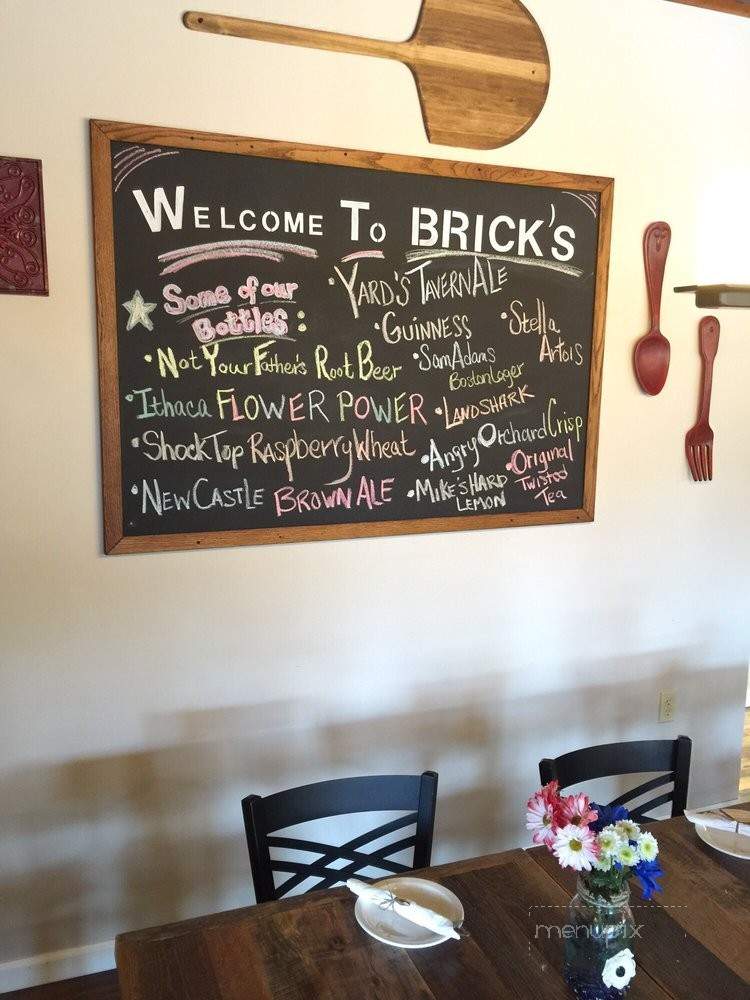 Welcome To BRICK'S
Some of our
Bottles:
• Not Your Father's Root Beer
• Ithaca FLOWER POWER
• Shock Top Raspberry Wheat
• New Castle Brown Ale
• Yard's Tavern Ale
• Guinness
• Stella
Artois
• Sam Adams
Boston Lager
• Landshark
• Angry Orchard Crisp
• Mike's Hard
Lemon
• Original
Twisted
Tea
menupix